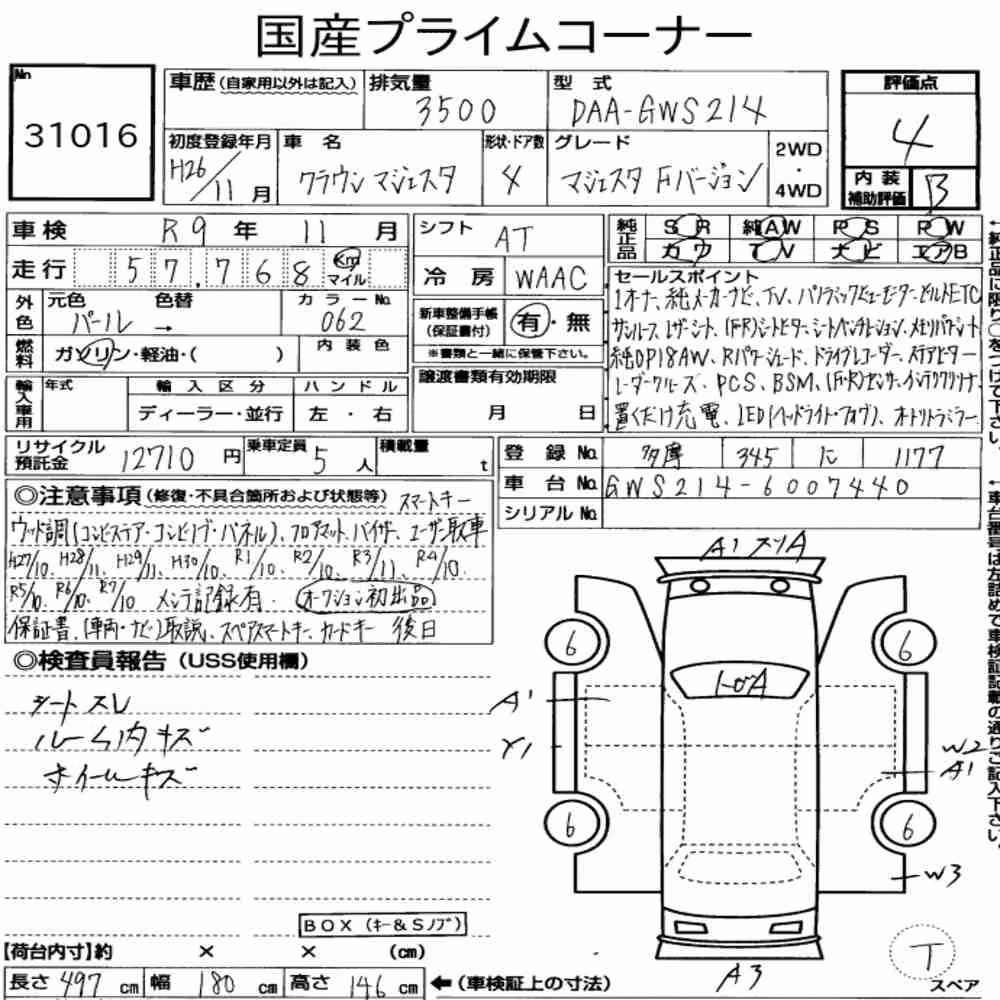 国産プライムコーナー
No 31016
車歴(自家用以外は記入) 排気量 3500 型式 DAA-GWS214
評価点 4
初度登録年月 H26/11月 車名 クラウン マジェスタ 形状・ドア数 4 グレード マジェスタ Fバージョン 2WD・4WD
内装補助評価 B
車検 R9年 11月
シフト AT
純正品 SR 純AW PS PW
カワ TV ナビ エアB
走行 57,768 Km マイル
冷房 WAAC
外色 元色 パール → 色替 カラーNo. 062
新車整備手帳(保証書付) 有・無
※書類と一緒に保管下さい。
燃料 ガソリン・軽油・( ) 内装色
輸入車用 年式 輸入区分 ディーラー・並行 ハンドル 左・右
譲渡書類有効期限 月 日
セールスポイント
1オーナ、純メーカーナビ、TV、パノラミックビューモニター、ビルトETC
サンルーフ、レザーシート、(FR)シートヒーター、シートベンチレーション、メモリパワーシート
純OP18AW、Rパワーシェード、ドライブレコーダー、ステアヒーター
レーダークルーズ、PCS、BSM、(F・R)センサー、インテリクリソナ
置くだけ充電、LED(ヘッドライト・フォグ)、オートリトラミラー
リサイクル預託金 12710円 乗車定員 5人 積載量 t
登録No. 多摩 345 に 1177
車台No. GWS214-6007440
シリアルNo.
◎注意事項(修復・不具合箇所および状態等) スマートキー
ウッド調(コンビステア・コンビノブ・パネル)、フロアマット、バイザー、ユーザー取車
H27/10、H28/11、H29/11、H30/10、R1/10、R2/10、R3/11、R4/10、
R5/10、R6/10、R7/10 メンテ記録有. オークション初出品
保証書、(車両・ナビ)取説、スペアスマートキー、カードキー 後日
◎検査員報告(USS使用欄)
シートスレ
ルーム内キズ
ホイールキズ
A1 スリA
6 6
トビA
A1
Y1
W2
A1
6 6
W3
A3
BOX(キー&Sノブ)
【荷台内寸】約 × × (cm)
長さ 497 cm 幅 180 cm 高さ 146 cm ←(車検証上の寸法)
T スペア
↑純正品に限り○をつけて下さい。
↑車台番号は左詰めで車検証記載の通りご記入下さい。